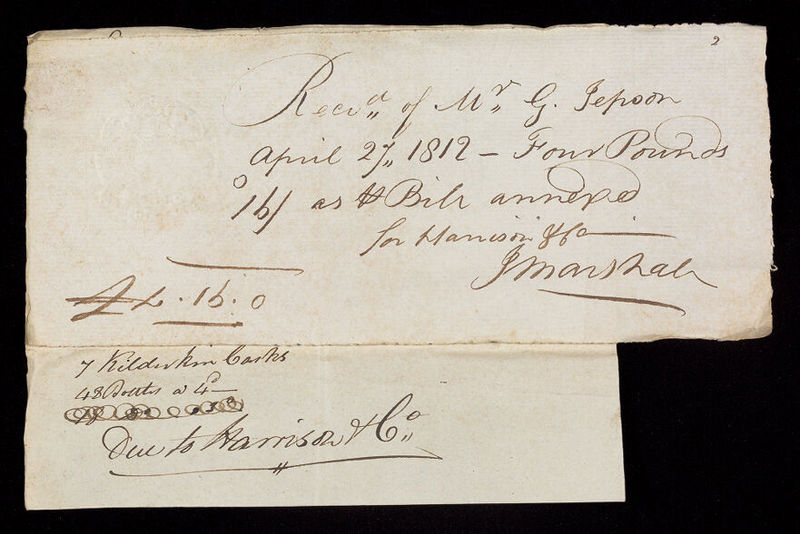 2
Recv.d of Mr. G. Jepson
April 27,, 1812 – Four Pounds
16/ as ⅌ Bill annexed
for Harrison & Co
J Marshall
£4.16.0
7 Kilderkin Casks
48 Bottles a 4d
Due to Harrison & Co